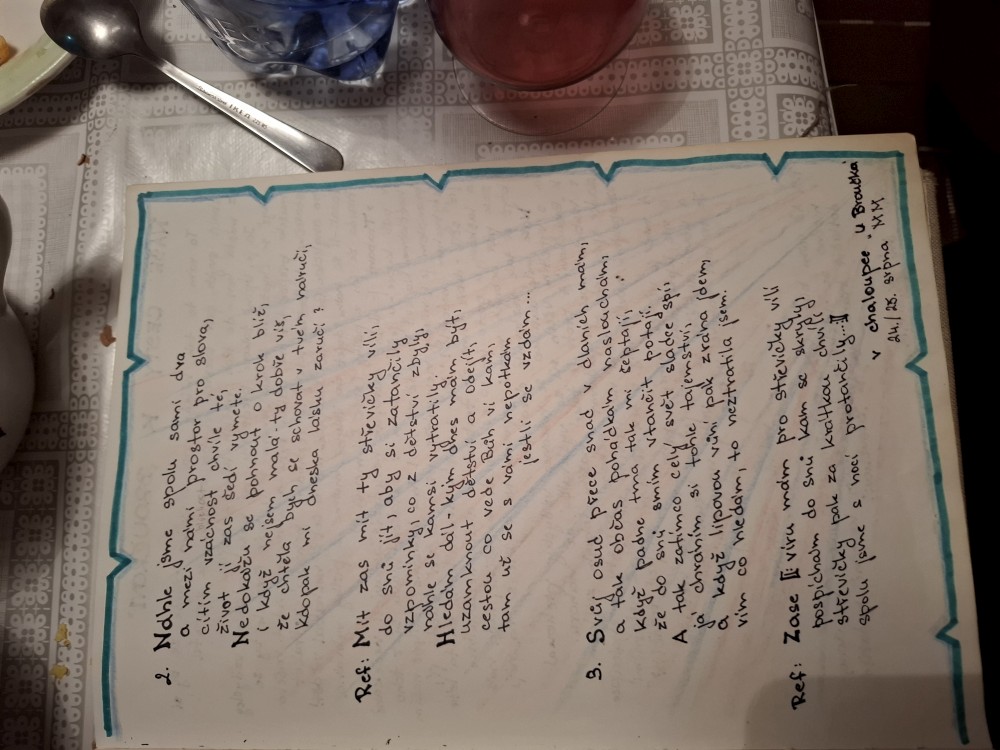 2. Náhle jsme spolu sami dva
a mezi námi prostor pro slova,
cítím vzácnost chvíle té,
život ji zas šedí vymete.
Nedokážu se pohnout o krok blíž,
i když nejsem malá - ty dobře víš,
že chtěla bych se schovat v tvém náručí,
kdopak mi dneska lásku zaručí?
Ref: Mít zas mít ty střevíčky vílí,
do snů jít, aby si zatančily
vzpomínky, co z dětství zbyly,
náhle se kamsi vytratily.
Hledám dál - kým dnes mám být,
uzamknout dětství a odejít,
cestou co vede Bůh ví kam,
tam už se s vámi nepotkám
jestli se vzdám...
3. Svůj osud přece snad v dlaních mám,
a tak občas pohádkám naslouchám,
když padne tma tak mi šeptají,
že do snů smím vtančit potají.
A tak zatímco celý svět sladce spí,
já chráním si tohle tajemství,
a když lípovou vůní pak zrána jdem,
vím co hledám, to neztratila jsem.
Ref: Zase [: víru mám pro střevíčky vílí
pospíchám do snů kam se skryly,
střevíčky pak za krátkou chvíli
spolu jsme s nocí protančily...:]
v chaloupce "U Broučka"
24./25. srpna MM